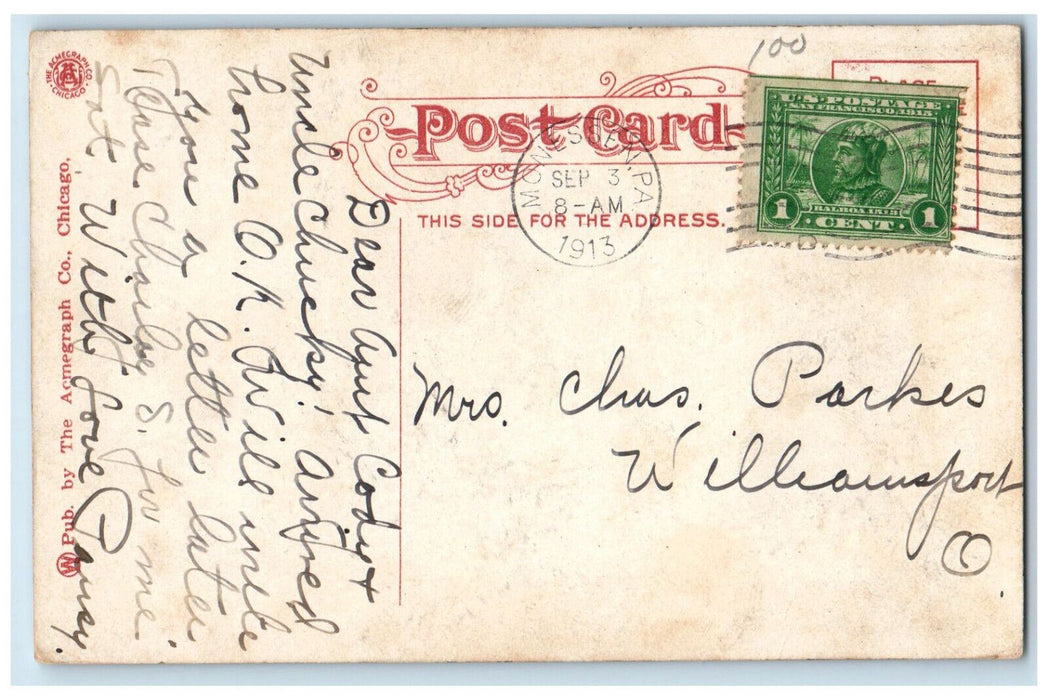 100
PLACE
Post Card
THIS SIDE FOR THE ADDRESS.
MONESSEN, PA
SEP 3
8-AM
1913
U.S. POSTAGE
SAN FRANCISCO 1915
BALBOA 1513
1 CENT 1
Dear Aunt Cody +
Uncle Chucky! Arrived
home O.K. Will write
you a letter later
Charley S. for me
With love Pansy.
Mrs. Chas. Parkes
Williamsport
O.
THE ACMEGRAPH CO.
CHICAGO
W Pub. by The Acmegraph Co., Chicago.